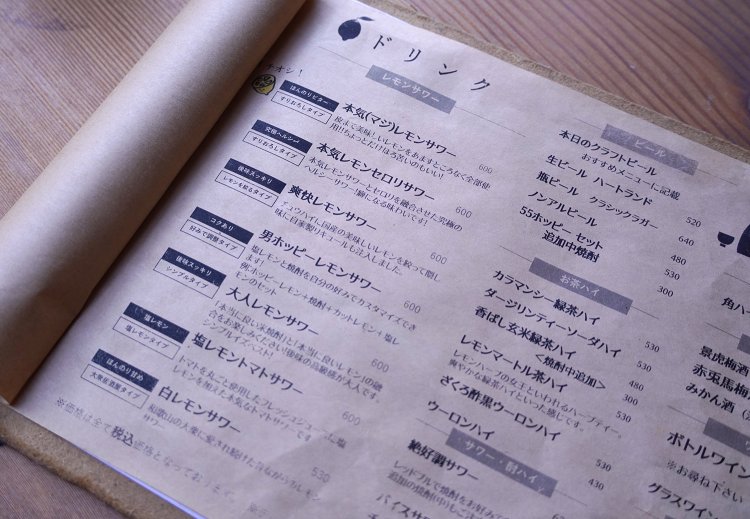 ドリンク
レモンサワー
ほんのりビター
すりおろしタイプ
本気(マジ)レモンサワー 600
皮まで美味しいレモンをあますところなく全部使
用!!ちょっとだけほろ苦いのもいい!
究極ヘルシー
すりおろしタイプ
本気レモンセロリサワー 600
本気レモンサワーとセロリを融合させた究極の
ヘルシーサワー!癖になる味わいです!
後味スッキリ
レモンを絞るタイプ
爽快レモンサワー 600
チュウハイに国産の美味しいレモンを絞って間し
味に自家製リキュールも注入しました。
コクあり
好みで調整タイプ
男ホッピーレモンサワー 600
塩レモンと焼酎を自分の好みでカスタマイズでき
ます!
例:ホッピーレモン+焼酎+カットレモン+塩レ
モンのセット
後味スッキリ
シンプルタイプ
大人レモンサワー 600
「本当に良い米焼酎」と「本当に良いレモン」の融
合をお楽しみください!後味の高級感が大人です。
シンプルイズベスト!
塩レモン
塩レモンタイプ
塩レモントマトサワー 600
トマトを丸ごと使用したフレッシュジュースに塩
レモンを加えた本気なトマトサワーです
ほんのり甘め
大衆居酒屋タイプ
白レモンサワー 530
和歌山の大衆に愛され続けた昔ながらのレモン
サワー
※価格は全て税込価格となっております。
ビール
本日のクラフトビール
おすすめメニューに記載
生ビール ハートランド 520
瓶ビール クラシックラガー 640
ノンアルビール 480
55ホッピー セット 530
追加中焼酎 300
お茶ハイ
カラマンシー緑茶ハイ 530
ダージリンティーソーダハイ 530
香ばし玄米緑茶ハイ 480
<焼酎中追加> 300
レモンマートル茶ハイ 530
レモンハーブの女王といわれるハーブティー。
爽やかな緑茶ハイといった感じです。
ざくろ酢黒ウーロンハイ 530
ウーロンハイ 430
サワー・酎ハイ
絶好調サワー 530
レッドブルで焼酎をお好みで
追加の焼酎(中)もご注
バイスサワー
角ハ
景虎梅酒
赤兎馬梅
みかん酒(
ボトルワイン
※お尋ね下さい
グラスワイン